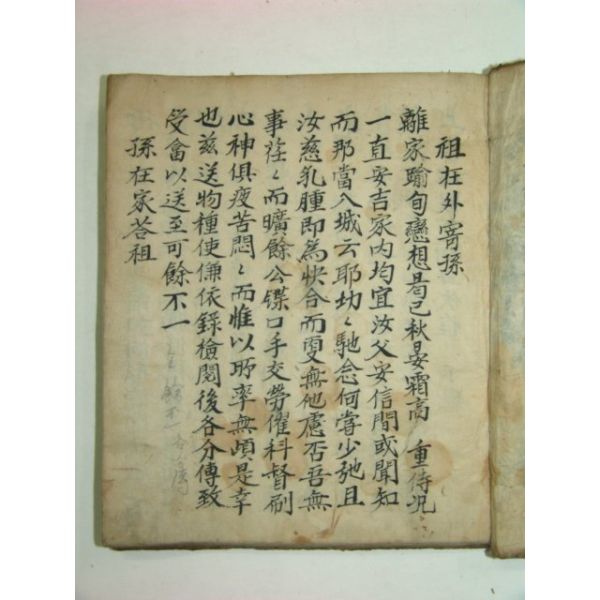 祖在外寄孫
離家踰旬戀想曷已秋晏霜高 重侍況
一直安吉家内均宜汝父安信間或聞知
而那當入城云耶劫〻馳念何嘗少弛且
汝慈乳腫即爲快合而更無他慮否吾無
事在〻而曠餘公鏁口手交勞催科督刷
心神俱疲苦悶〻而惟以所率無頉是幸
也玆送物種使傔依錄檢閱後各分傳致
受畣以送至可餘不一
孫在家答祖